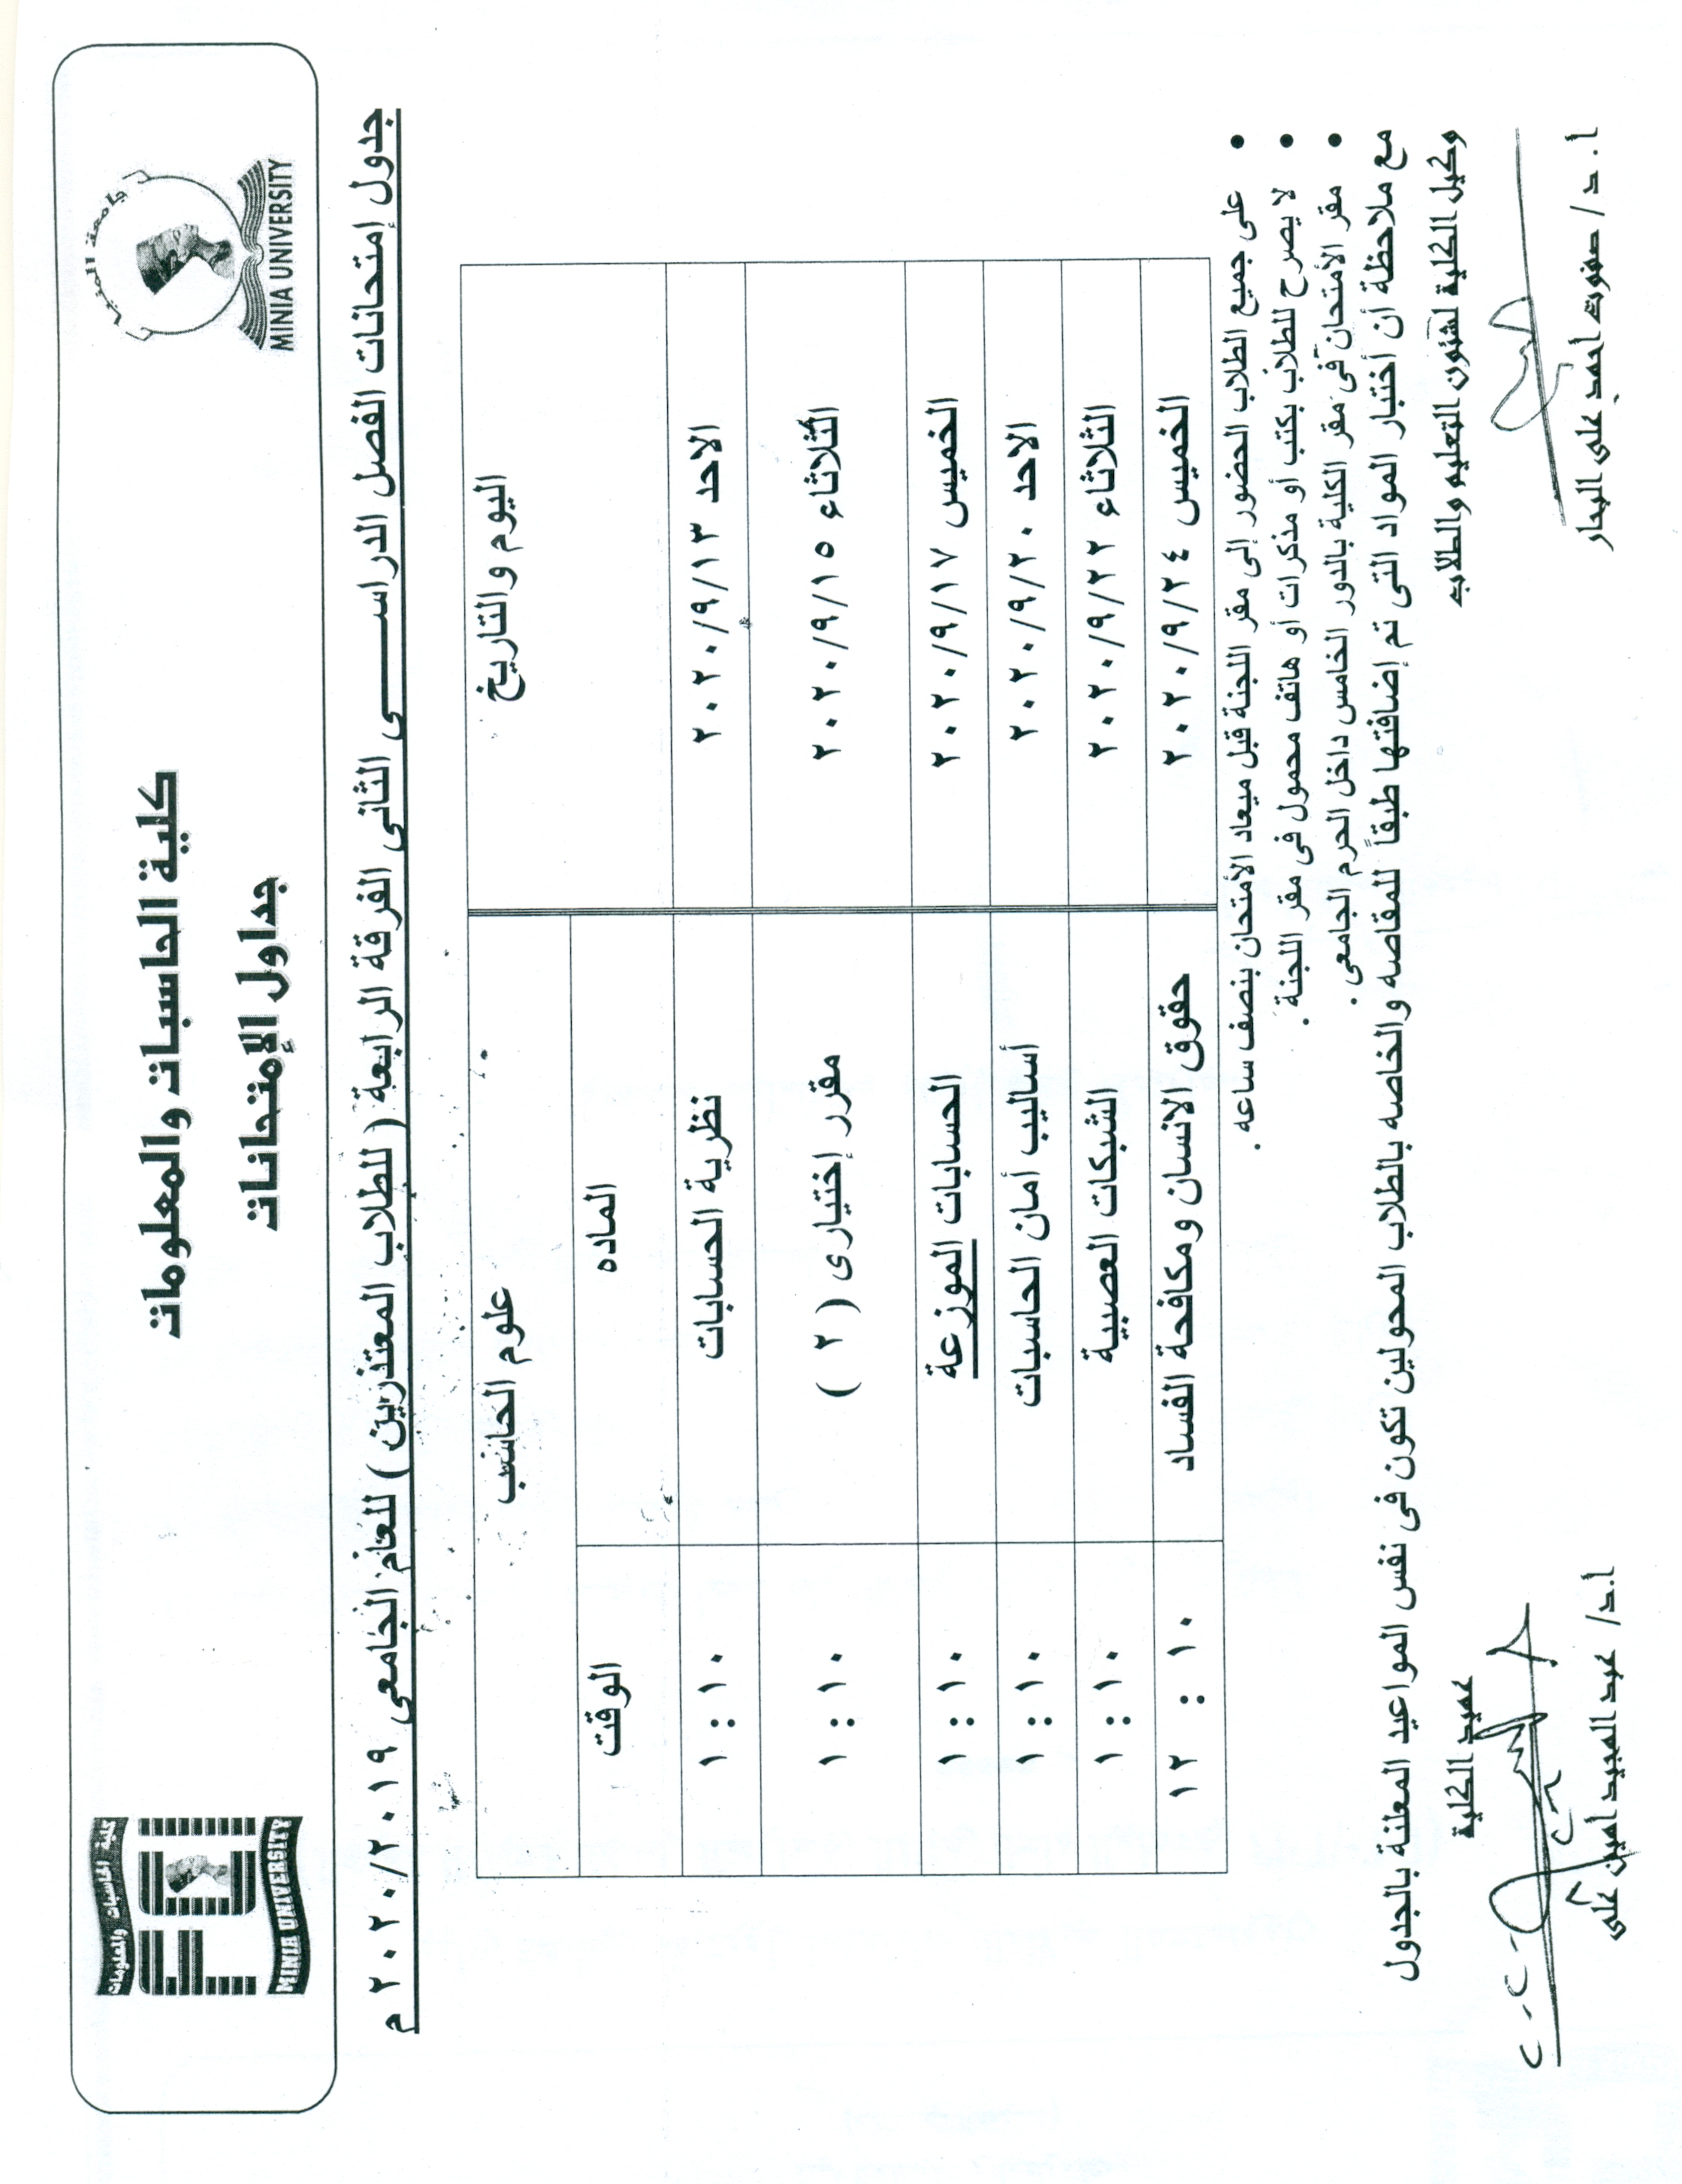 جامعة المنيا
MINIA UNIVERSITY
كلية الحاسبات والمعلومات
جداول الإمتحانات
كلية الحاسبات والمعلومات
FCI
MINIA UNIVERSITY
جدول إمتحانات الفصل الدراســــى الثانى الفرقة الرابعة ( للطلاب المعتذرين ) للعام الجامعى ٢٠٢٠/٢٠١٩ م
اليوم والتاريخ علوم الحاسب
الماده الوقت
الاحد ٢٠٢٠/٩/١٣ نظرية الحسابات ١٠ : ١
الثلاثاء ٢٠٢٠/٩/١٥ مقرر إختيارى ( ٢ ) ١٠ : ١
الخميس ٢٠٢٠/٩/١٧ الحسابات الموزعة ١٠ : ١
الاحد ٢٠٢٠/٩/٢٠ أساليب أمان الحاسبات ١٠ : ١
الثلاثاء ٢٠٢٠/٩/٢٢ الشبكات العصبية ١٠ : ١
الخميس ٢٠٢٠/٩/٢٤ حقوق الانسان ومكافحة الفساد ١٠ : ١٢
• على جميع الطلاب الحضور إلى مقر اللجنة قبل ميعاد الأمتحان بنصف ساعه .
• لا يصرح للطلاب بكتب أو مذكرات أو هاتف محمول فى مقر اللجنة .
• مقر الأمتحان فى مقر الكلية بالدور الخامس داخل الحرم الجامعى .
مع ملاحظة أن أختبار المواد التى تم إضافتها طبقاً للمقاصه والخاصه بالطلاب المحولين تكون فى نفس المواعيد المعلنة بالجدول
وكيل الكلية لشئون التعليم والطلاب عميد الكلية
ا.د/ صفوت أحمد على البحار ا.د/ عبد المجيد امين على